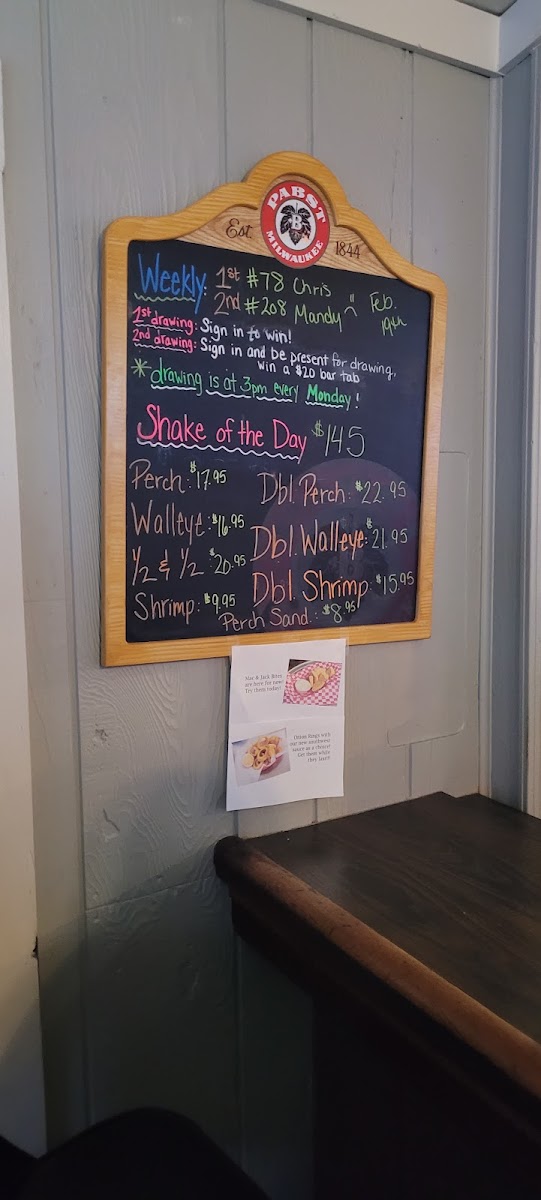 PABST
B
MILWAUKEE
Est. 1844
Weekly: 1st #78 Chris
2nd #208 Mandy Feb. 19th
1st drawing: Sign in to win!
2nd drawing: Sign in and be present for drawing,
win a $20 bar tab
*drawing is at 3pm every Monday!
Shake of the Day $145
Perch: $17.95 Dbl. Perch: $22.95
Walleye: $16.95 Dbl. Walleye: $21.95
1/2 & 1/2 $20.95 Dbl. Shrimp: $15.95
Shrimp: $9.95 Perch Sand.: $8.95
Mac & Jack Bites
are here for now!
Try them today!
Onion Rings with
our new southwest
sauce as a choice!
Get them while
they last!!